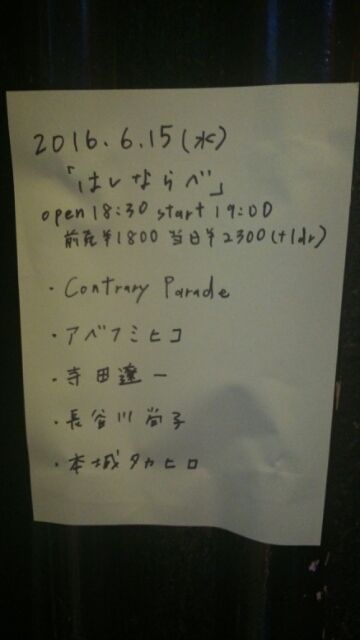 2016.6.15(水)
「はしならべ」
open 18:30 start 19:00
前売¥1800 当日¥2300(+1dr)
・Contrary Parade
・アベフミヒコ
・寺田遼一
・長谷川尚子
・本城タカヒロ